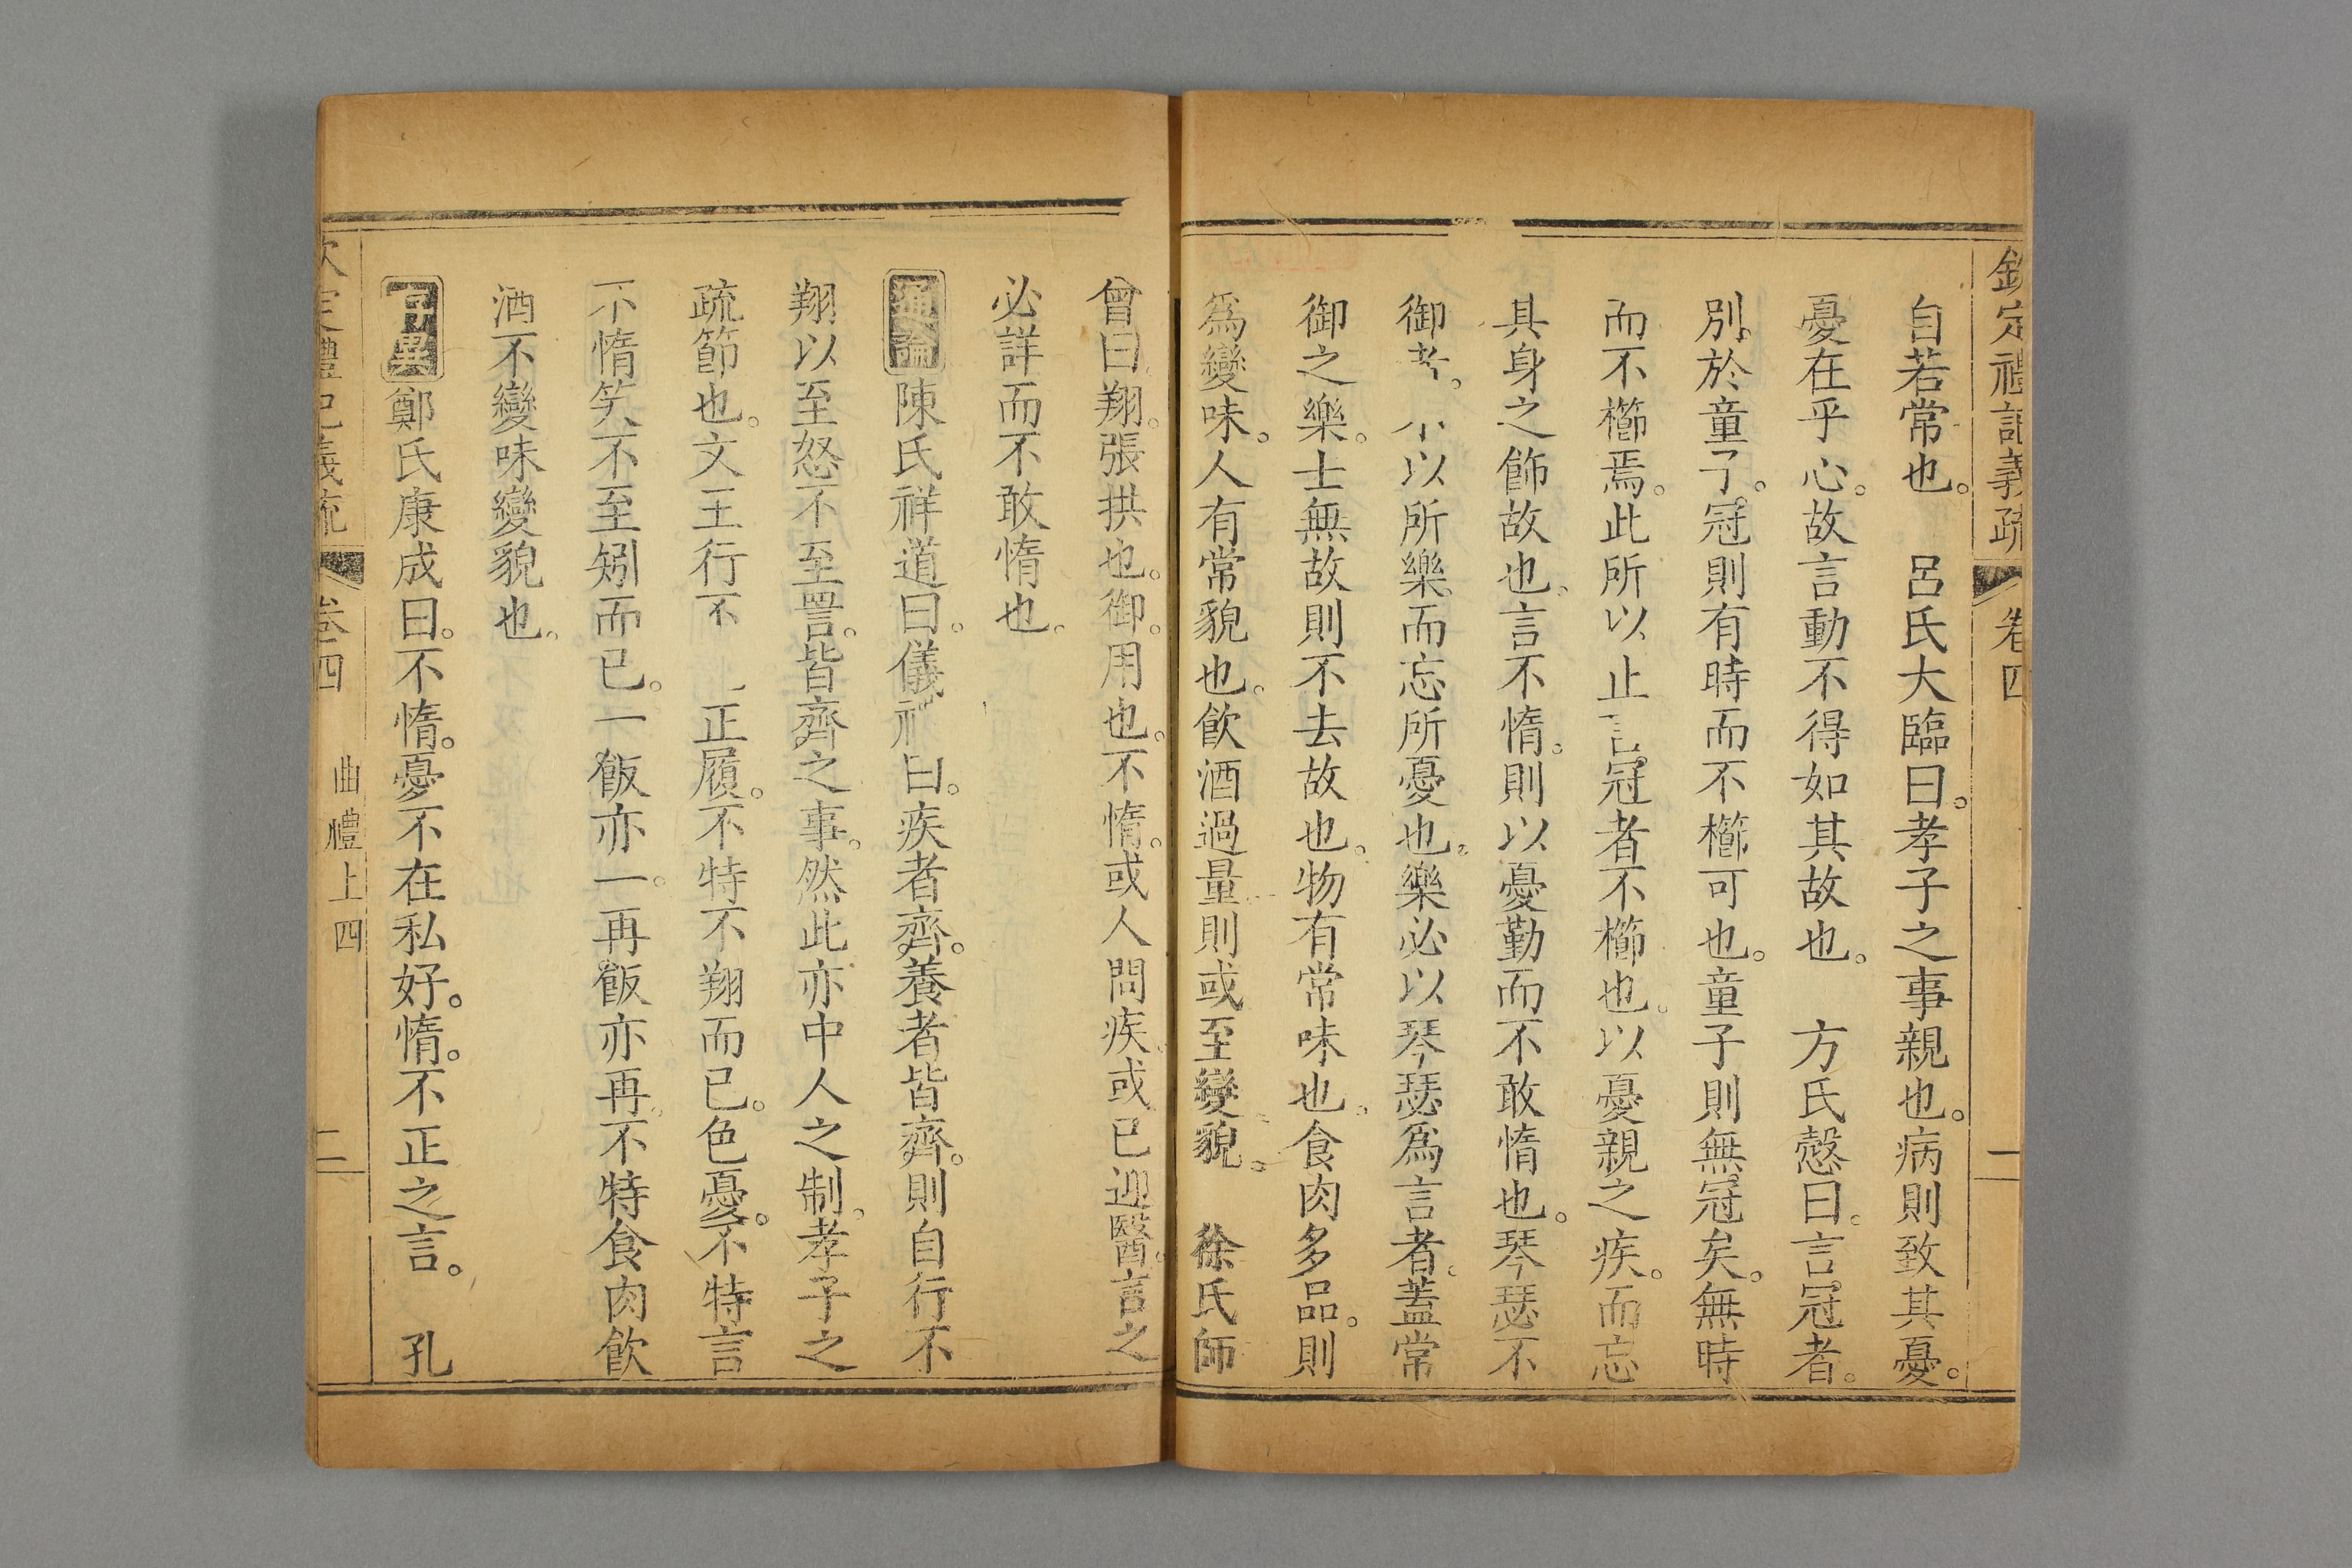 欽定禮記義疏 卷四 一
自若常也。 呂氏大臨曰。孝子之事親也。病則致其憂。
憂在乎心。故言動不得如其故也。 方氏慤曰。言冠者。
別於童子。冠則有時而不櫛可也。童子則無冠矣。無時
而不櫛焉。此所以止言冠者不櫛也。以憂親之疾。而忘
具身之飾故也。言不惰。則以憂勤而不敢惰也。琴瑟不
御者。不以所樂。而忘所憂也。樂必以琴瑟爲言者。蓋常
御之樂。士無故則不去故也。物有常味也。食肉多品。則
爲變味。人有常貌也。飮酒過量則或至變貌。 徐氏師
曾曰。翔。張拱也。御。用也。不惰。或人問疾。或已迎醫。言之
必詳而不敢惰也。
通論 陳氏祥道曰。儀禮曰。疾者齊。養者皆齊。則自行不
翔以至怒不至詈。皆齊之事。然此亦中人之制。孝子之
疏節也。文王行不 正履。不特不翔而已。色憂。不特言
不惰笑不至矧而已。一飯亦一。再飯亦再。不特食肉飮
酒不變味變貌也。
存異 鄭氏康成曰。不惰。憂不在私好。惰。不正之言。 孔
欽定禮記義疏 卷四 曲禮上四 二